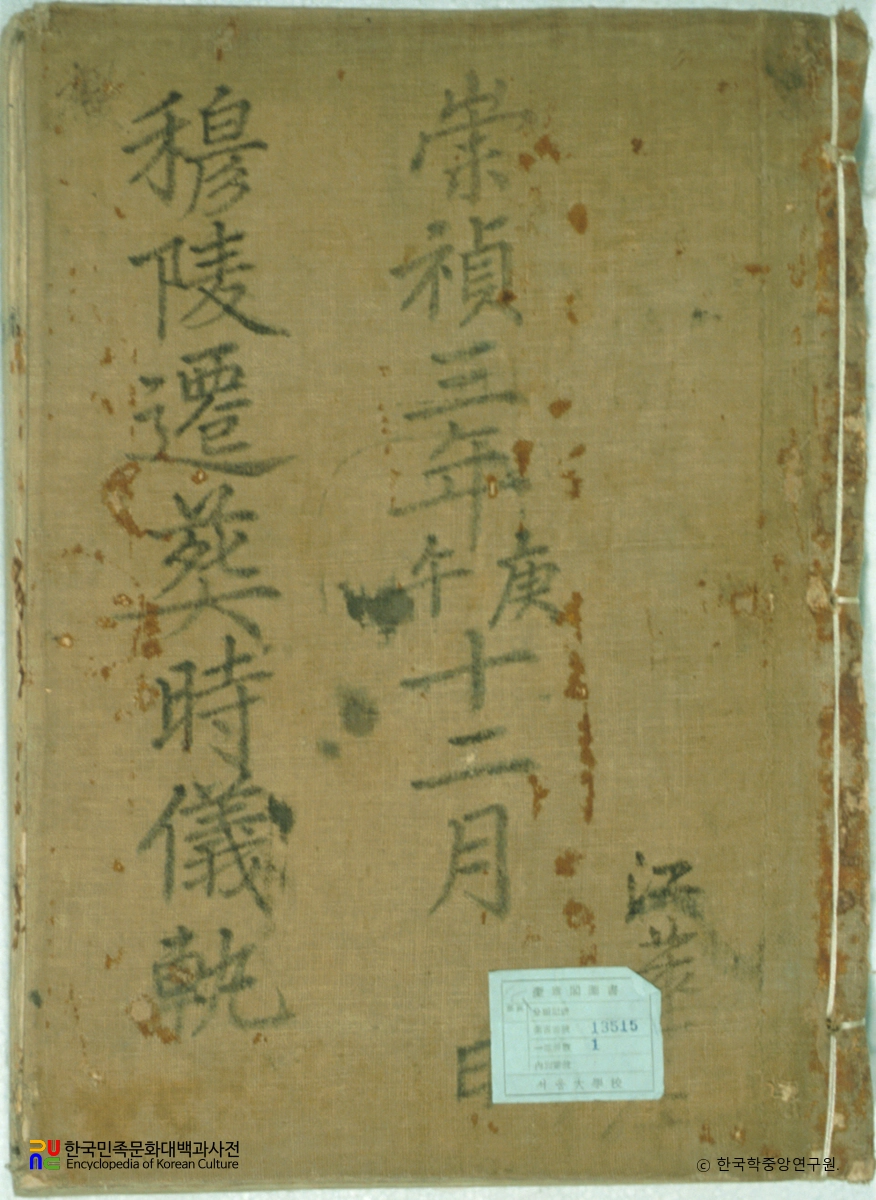 江華
崇禎三年庚午十二月
穆陵遷葬時儀軌
奎章閣圖書
13515
1
서울大學校
한국민족문화대백과사전
Encyclopedia of Korean Culture
© 한국학중앙연구원.